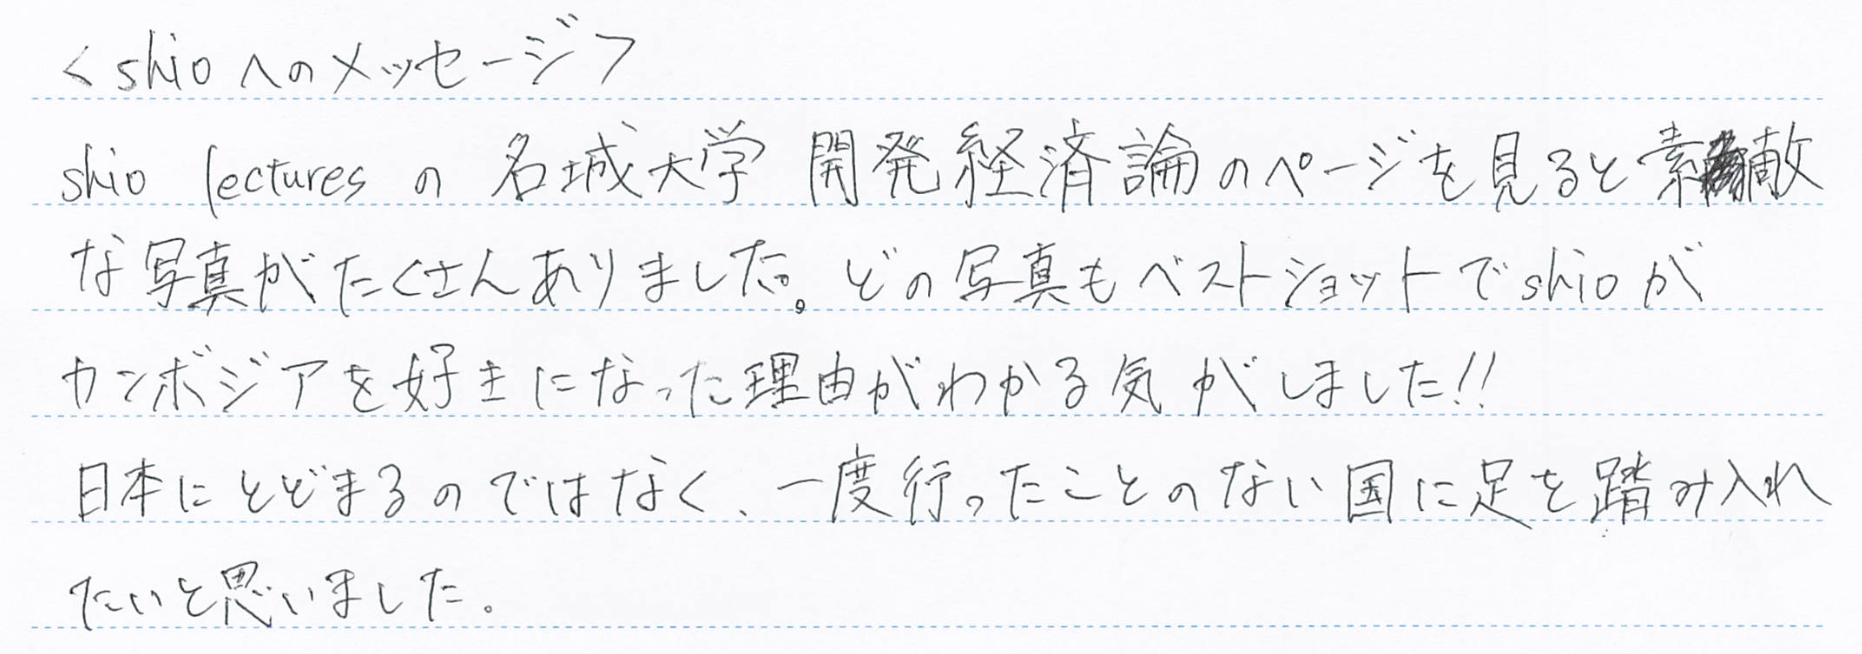 <shioへのメッセージ>
shio lecturesの 名城大学 開発経済論のページを見ると素敵
な写真がたくさんありました。どの写真もベストショットでshioが
カンボジアを好きになった理由がわかる気がしました!!
日本にとどまるのではなく、一度行ったことのない国に足を踏み入れ
たいと思いました。